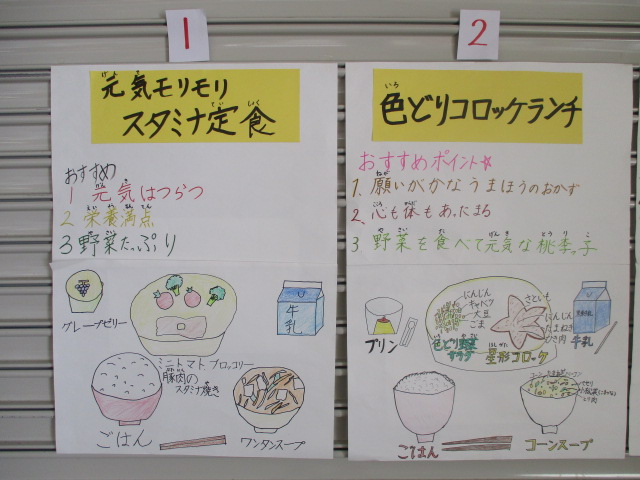 1
元気モリモリ
スタミナ定食
おすすめ
1 元気はつらつ
2 栄養満点
3 野菜たっぷり
グレープゼリー
牛乳
ミニトマト ブロッコリー
豚肉の
スタミナ焼き
ごはん
ワンタンスープ
2
色どりコロッケランチ
おすすめポイント☆
1. 願いがかなうまほうのおかず
2. 心も体もあったまる
3 野菜を食べて元気な桃李っ子
プリン
にんじん
キャベツ
大豆
ごま
色どり野菜
サラダ
さといも
にんじん
たまねぎ
ひき肉
星形コロッケ
牛乳
ごはん
コーンスープ